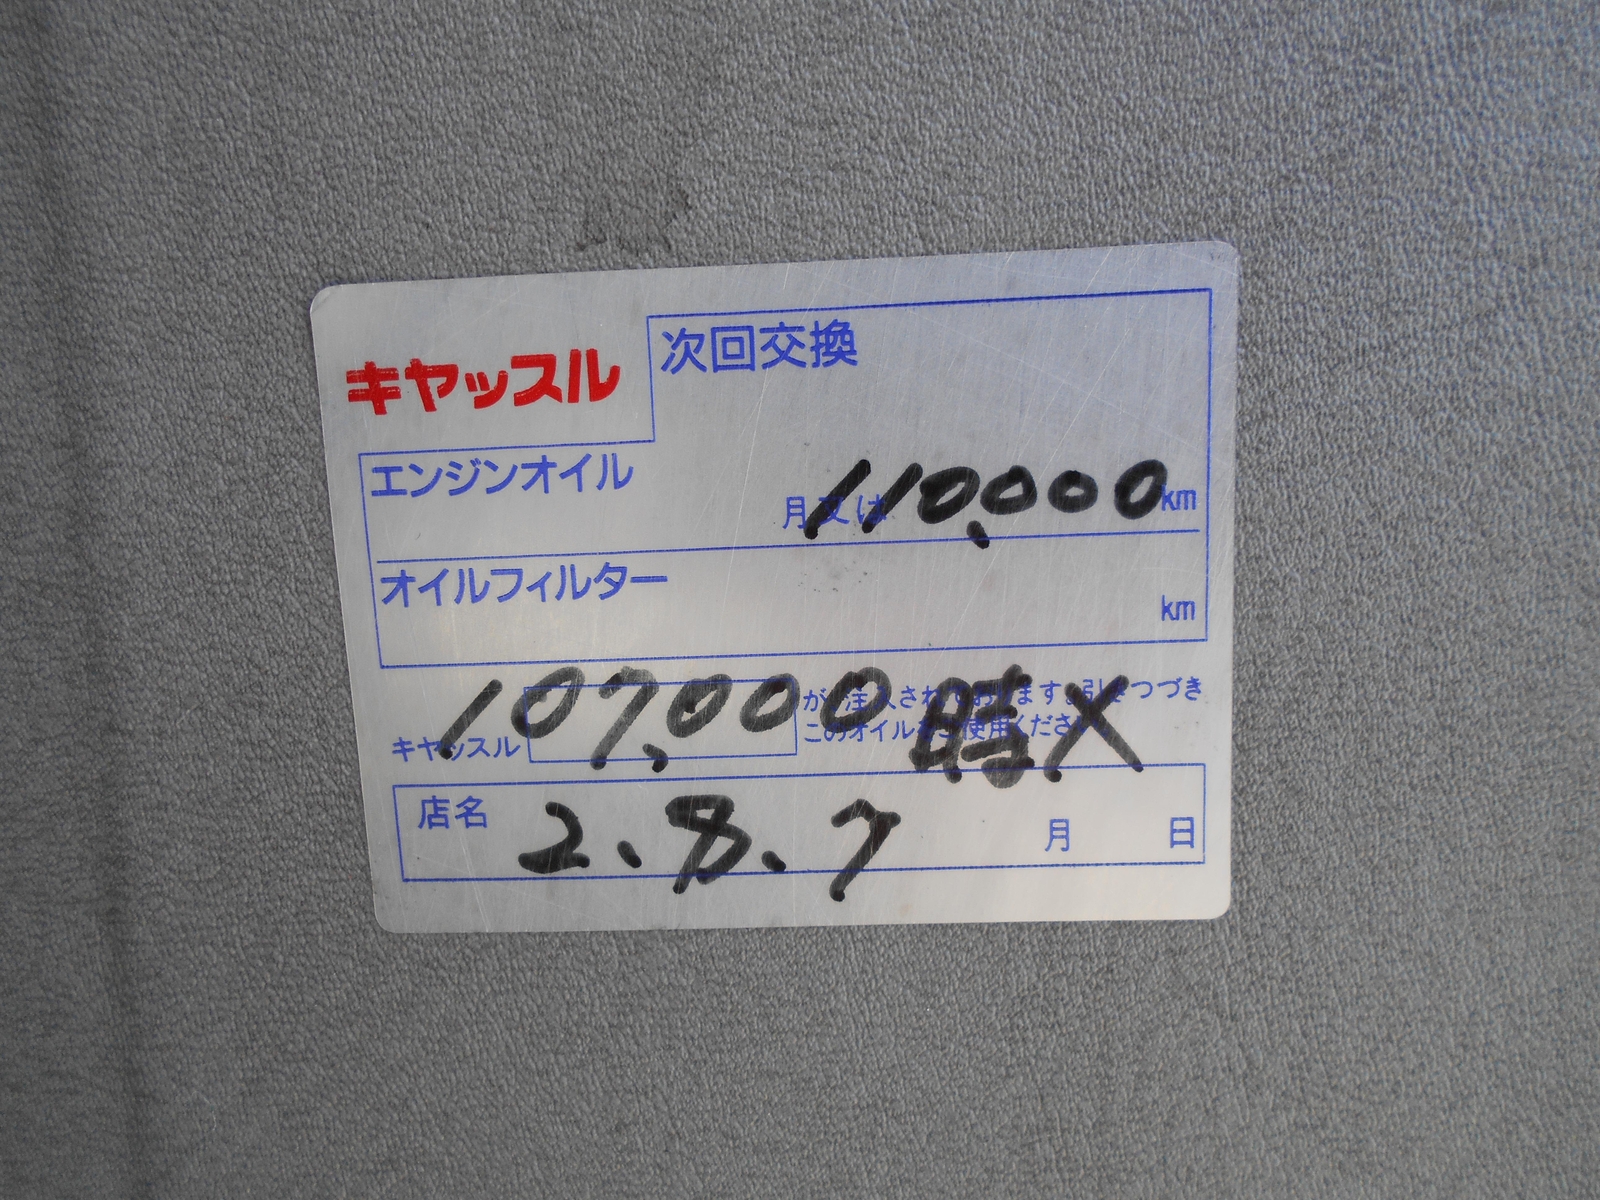 キヤッスル
次回交換
エンジンオイル
月又は 110,000 km
オイルフィルター
km
107,000 時メ
キヤッスル が注入されております。引きつづき
このオイルをご使用ください
店名 2.8.7 月 日